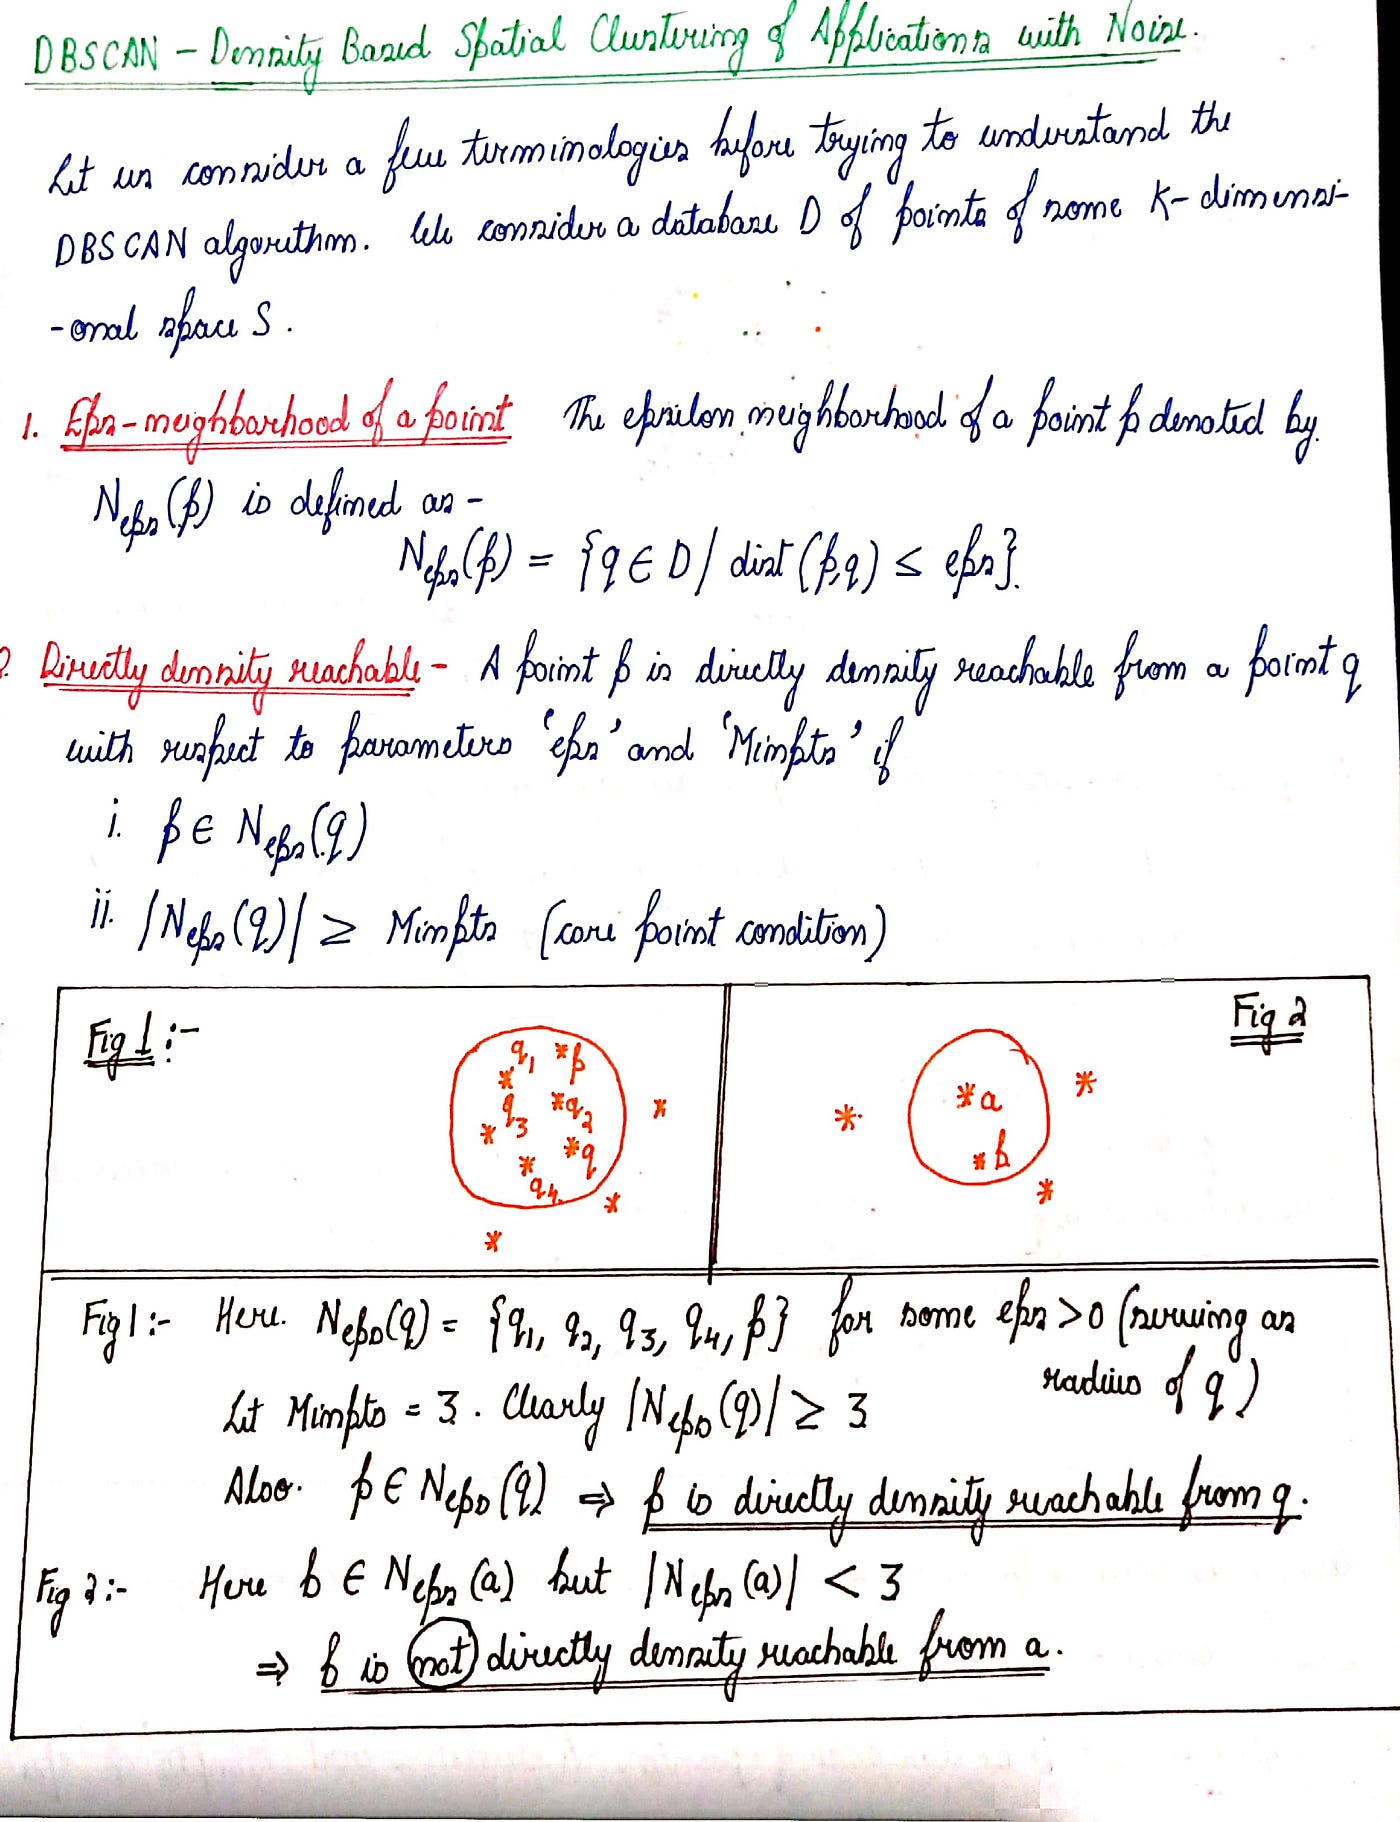 DBSCAN - Density Based Spatial Clustering of Applications with Noise.
Let us consider a few terminologies before trying to understand the
DBSCAN algorithm. We consider a database D of points of some K-dimensi-
-onal space S.
1. Eps-neighborhood of a point The epsilon neighborhood of a point p denoted by
Neps(p) is defined as -
Neps(p) = {q ∈ D / dist (p,q) ≤ eps}.
2. Directly density reachable - A point p is directly density reachable from a point q
with respect to parameters 'eps' and 'Minpts' if
i. p ∈ Neps(q)
ii. |Neps(q)| ≥ Minpts (core point condition)
Fig 1 :-
q1 * p
*
q3 * q2
*
* q
*
q4
*
*
*
Fig 2
* a
* b
*
*
*
Fig 1 :- Here. Neps(q) = {q1, q2, q3, q4, p} for some eps > 0 (serving as
radius of q)
Let Minpts = 3. Clearly |Neps(q)| ≥ 3
Also. p ∈ Neps(q) ⇒ p is directly density reachable from q.
Fig 2 :- Here b ∈ Neps (a) but |Neps (a)| < 3
⇒ b is not directly density reachable from a.